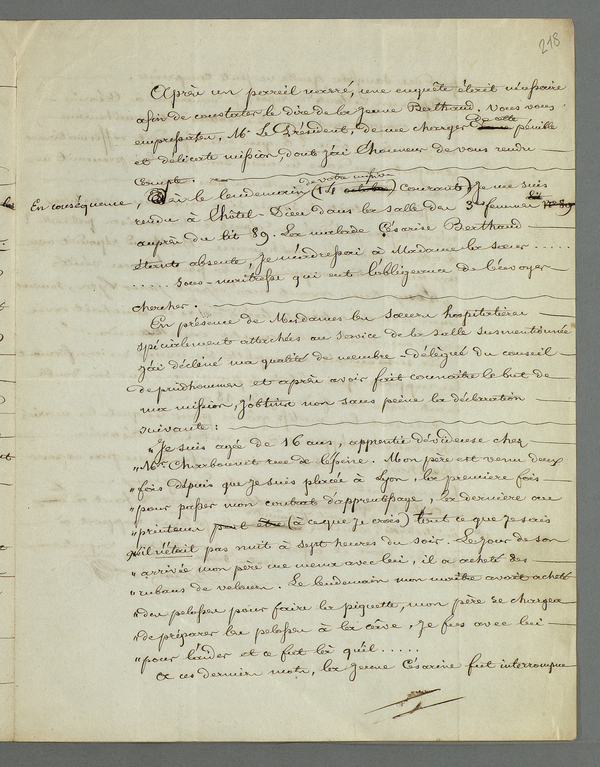 218
Après un pareil narré, une enquête était nécessaire
afin de constater le dire de la jeune Berthaud. Vous vous
empressâtes, Mr Le Président, de me charger de cette pénible
et délicate mission, dont j'ai l'honneur de vous rendre
compte.
En conséquence, dès le lendemain de votre mission (14 octobre courant) je me suis
rendu à l'hôtel-Dieu dans la salle des 3e femmes dit No 89
auprès du lit 89. La malade Césarine Berthaud
étant absente, je m'adressai à Madame la sœur .....
...... sous-maîtresse qui eut l'obligeance de l'envoyer
chercher.
En présence de Mesdames les sœurs hospitalières
spécialement attachées au service de la salle susmentionnée
j'ai décliné ma qualité de membre-délégué du conseil
de prudhommes et après avoir fait connaître le but de
ma mission, j'obtins non sans peine la déclaration
suivante :
"Je suis agée de 16 ans, apprentie dévideuse chez
"Mr Charbonnet rue de l'épine. Mon père est venu deux
"fois depuis que je suis placée à Lyon, la première fois
"pour passer mon contrat d'apprentissage, la dernière au
"printems (à ce que je crois) tout ce que je sais
qu'il n'était pas nuit à sept heures du soir. Le jour de son
"arrivée mon père me mena avec lui, il a acheté des
"rubans de velours. Le lendemain mon maître avait acheté
"des pelosses pour faire la piquette, mon père se chargea
"de préparer les pelosses à la cave, je fus avec lui
"pour l'aider et ce fut là qu'il.....
A ces derniers mots, la jeune Césarine fut interrompue